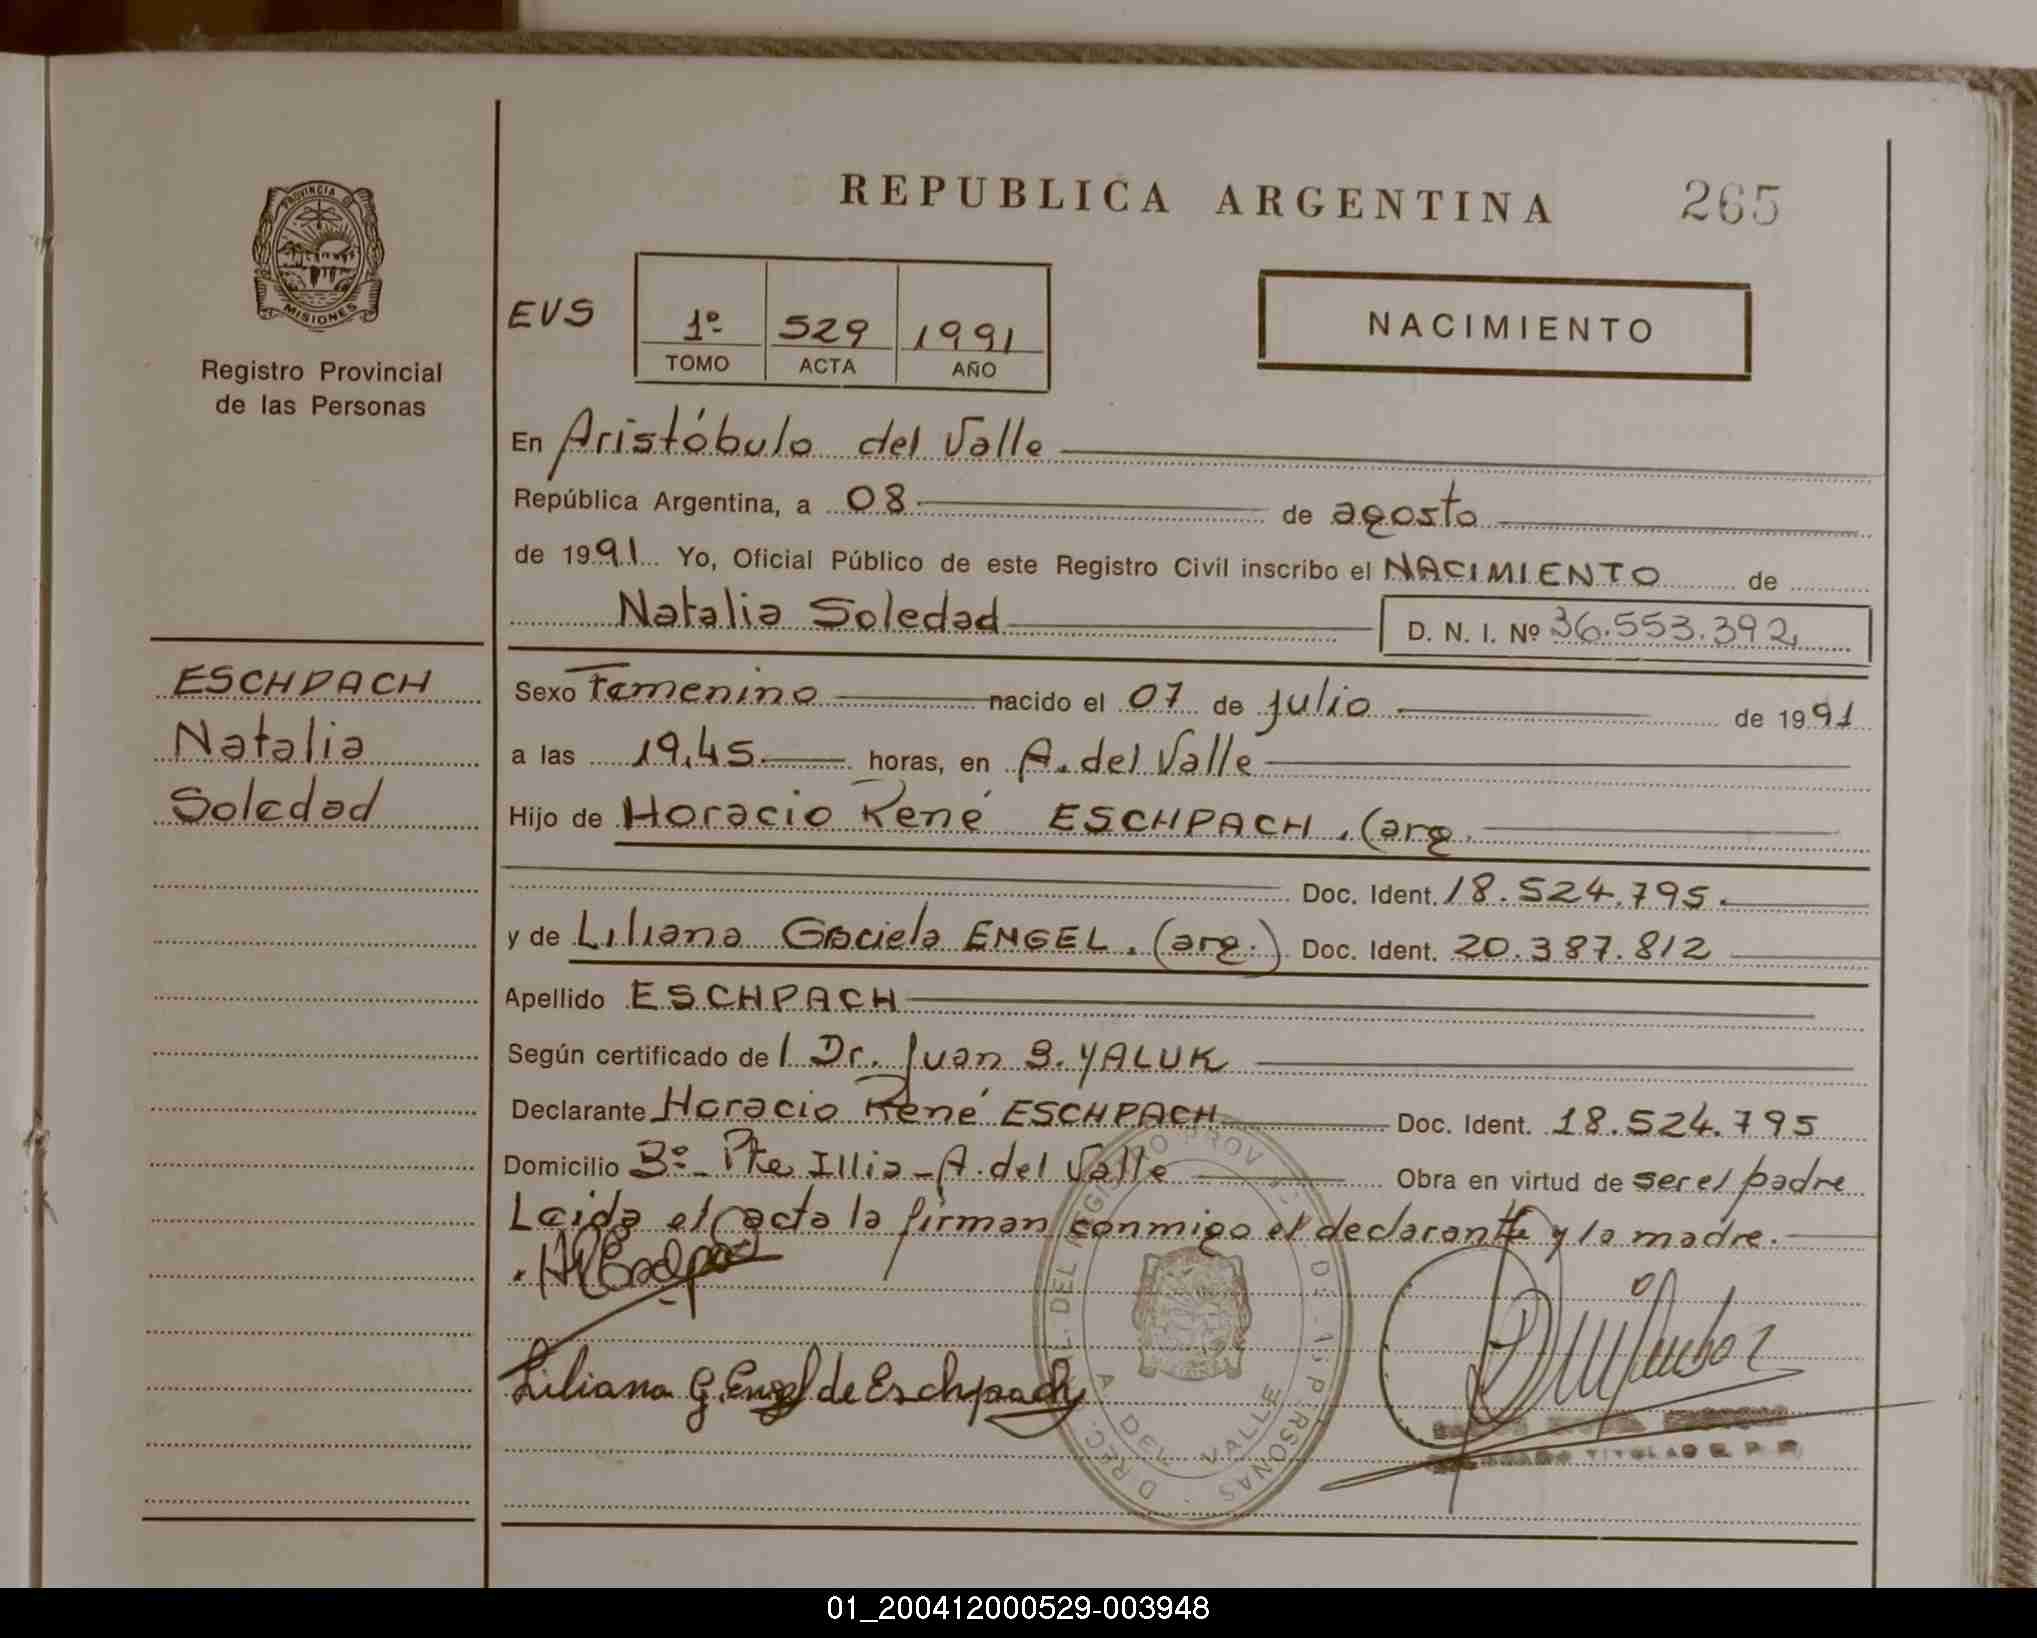 REPUBLICA ARGENTINA 265
PROVINCIA
MISIONES
Registro Provincial
de las Personas
EVS 1º 529 1991
TOMO ACTA AÑO
NACIMIENTO
En Aristóbulo del Valle
República Argentina, a 08 de agosto
de 1991 Yo, Oficial Público de este Registro Civil inscribo el NACIMIENTO de
Natalia Soledad D. N. I. Nº 36.553.392
ESCHPACH
Natalia
Soledad
Sexo Femenino nacido el 07 de julio de 1991
a las 19,45 horas, en A. del Valle
Hijo de Horacio René ESCHPACH. (arg.
Doc. Ident. 18.524.795.
y de Liliana Graciela ENGEL. (arg.) Doc. Ident. 20.387.812
Apellido ESCHPACH
Según certificado de l Dr. Juan B. YALUK
Declarante Horacio René ESCHPACH Doc. Ident. 18.524.795
Domicilio Bº- Pte Illia - A. del Valle Obra en virtud de ser el padre
Leida el acta la firman conmigo el declarante y la madre.
Liliana G. Engel de Eschpach
DIREC. DEL REGISTRO PROV. DE LAS PERSONAS
A DEL VALLE
TITULAR R. P. P.
01_200412000529-003948